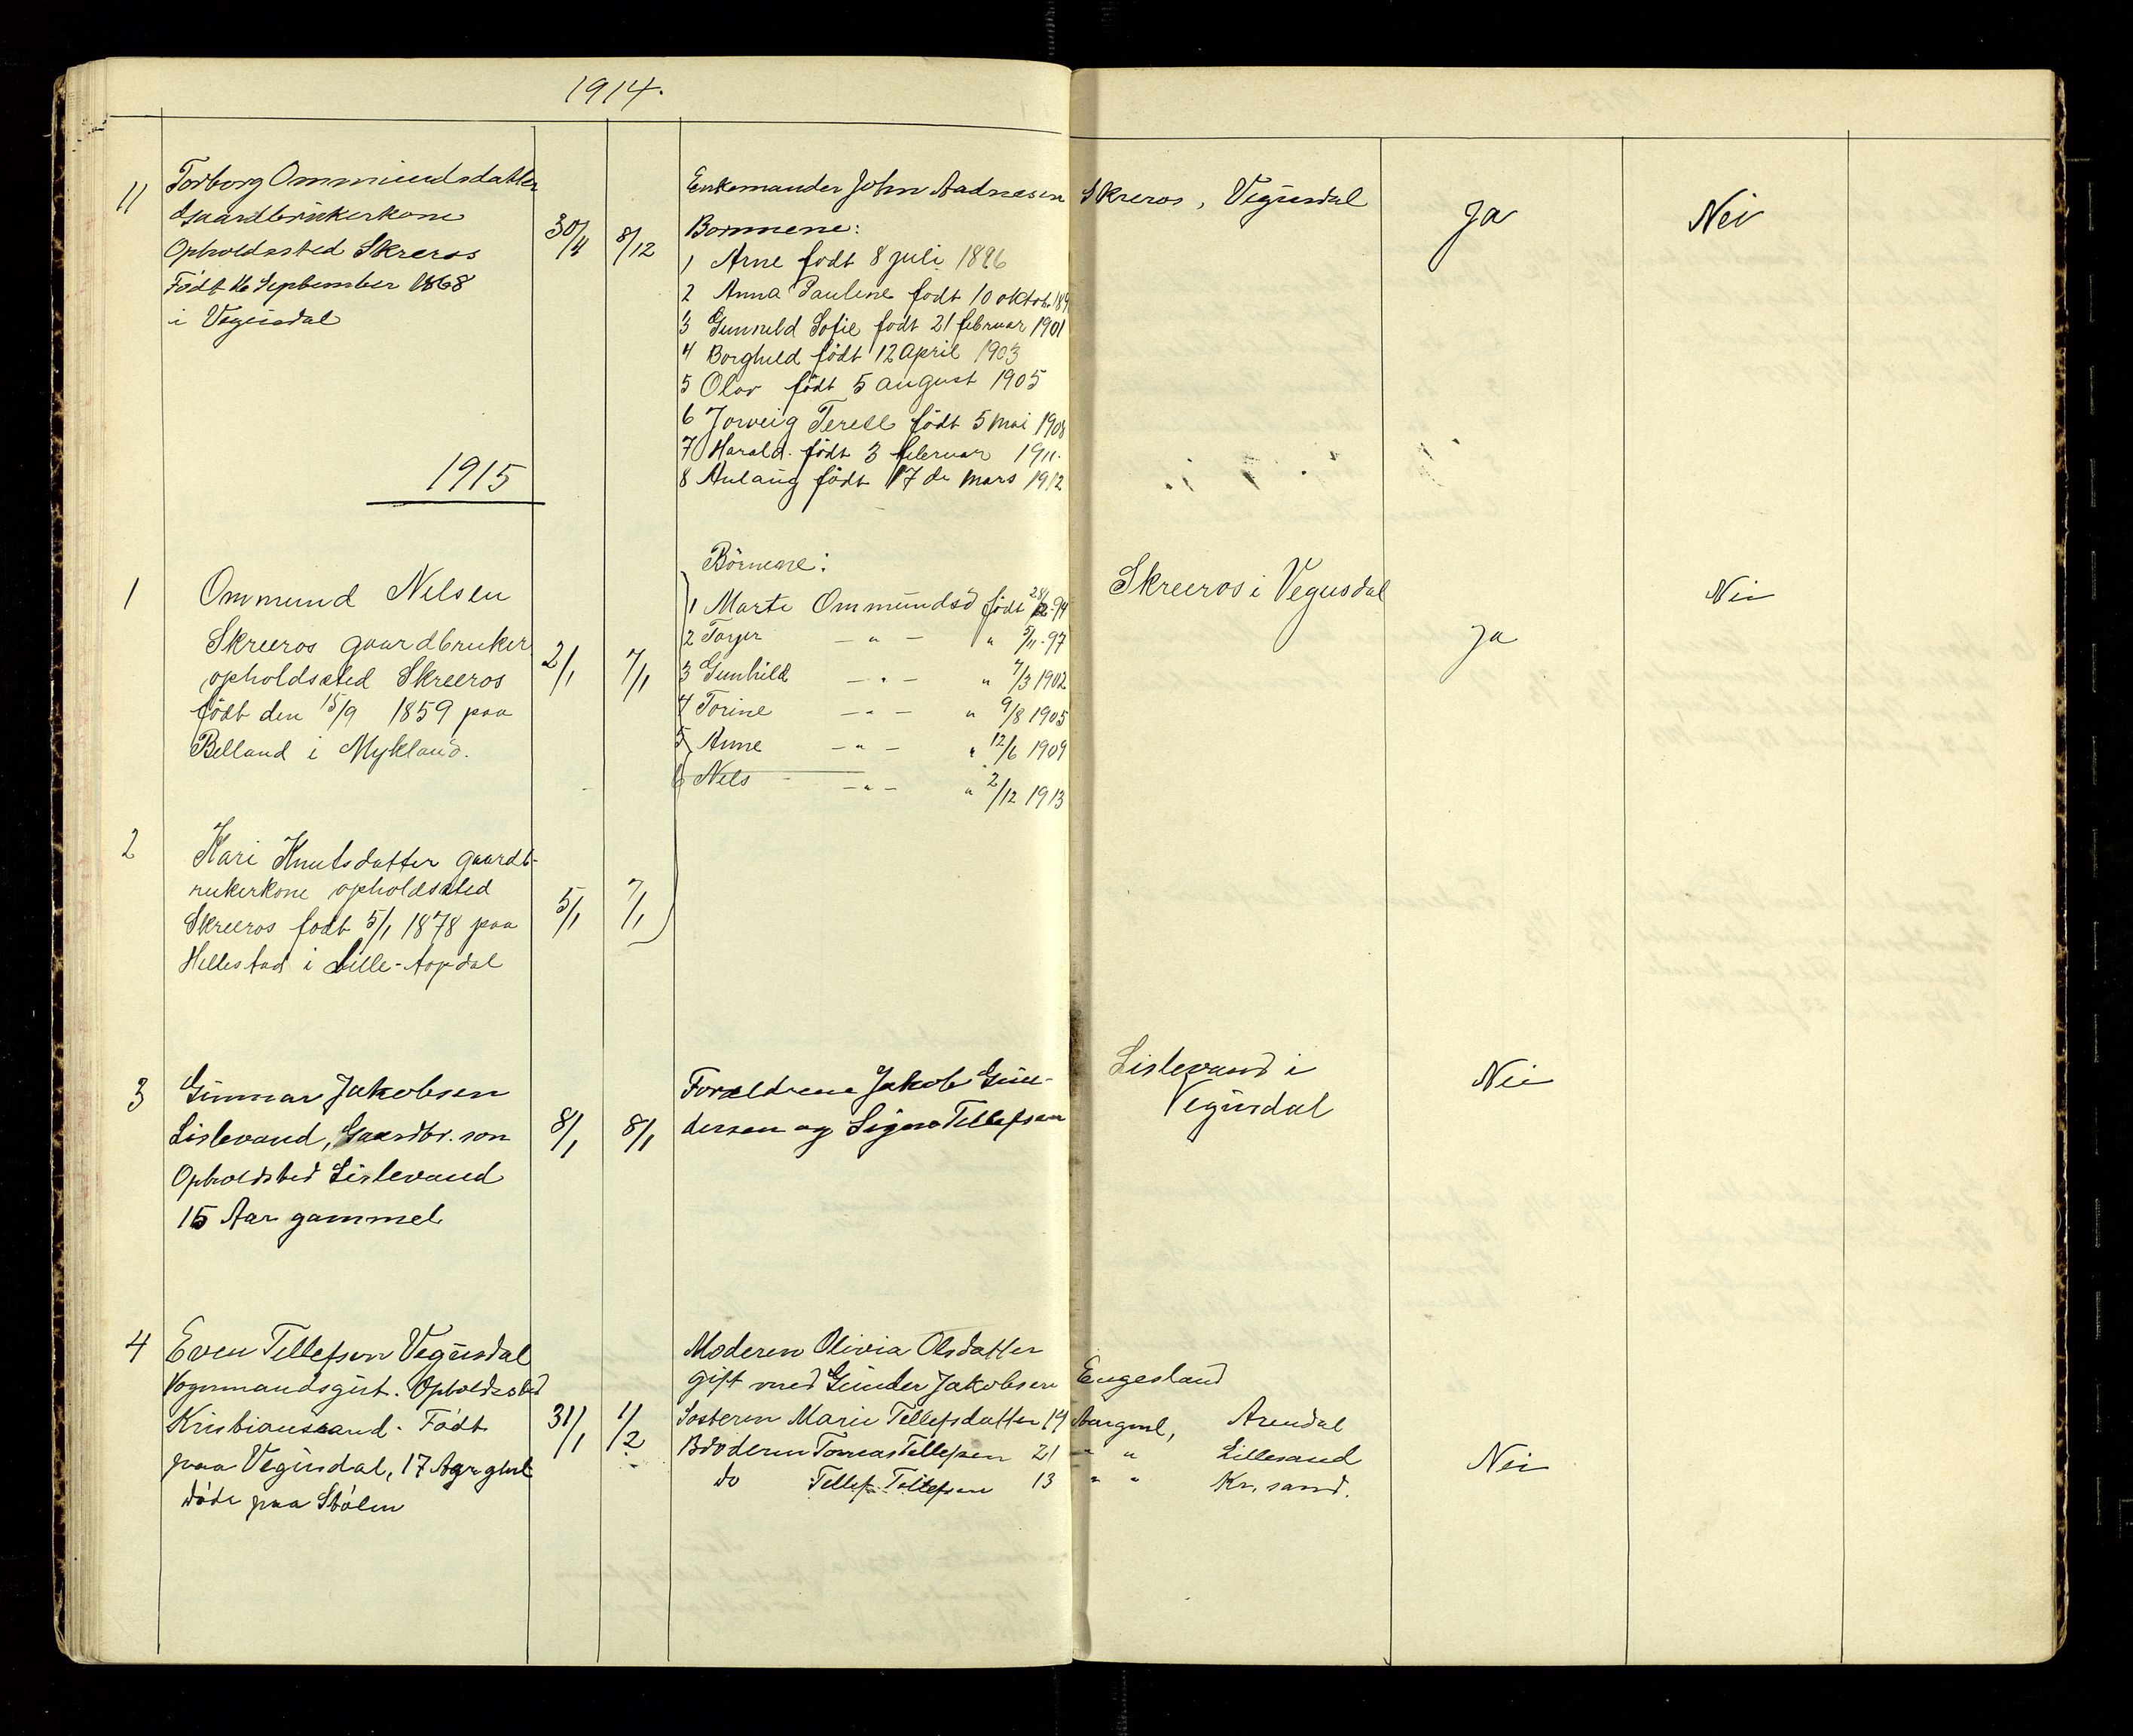 1914.
11
Torborg Ommundsdatter
Gaardbrukerkone
Opholdssted Skreros
Født 16 September 1868
i Vegusdal
30/4
8/12
Enkemanden John Aadnesen
Børnnene:
1 Arne født 8 juli 1896
2 Anna Pauline født 10 oktob. 189
3 Gunnuld Sofie født 21 februar 1901
4 Borghild født 12 April 1903
5 Olav født 5 august 1905
6 Jorveig Terese født 5 mai 1908
7 Harald. født 3 februar 1911.
8 Aulaug født 17 de mars 1912
Skreros, Vegusdal
Ja
Nei
1915
1
Ommund Nelsen
Skreeros gaardbruker
opholdssted Skreeros
født den 15/9 1859 paa
Belland i Mykland.
2/1
7/1
Børnene:
1 Marte Ommundsd født 28/12-94
2 Torjer — " — " 5/11-97
3 Gunhild — " — " 7/3 1902
4 Torine — " — " 9/8 1905
5 Anne — " — " 12/6 1909
6 Nils — " — " 2/12 1913
Skreeros i Vegusdal
Ja
Nei
2
Kari Knutsdatter gaardb-
rukerkone opholdssted
Skreeros født 5/1 1878 paa
Hellestad i Lille-Topdal
5/1
7/1
3
Gunnar Jakobsen
Lislevand, Gaardbr. søn
Opholdsted Lislevand
15 Aar gammel
8/1
8/1
Forældrene Jakob Gun-
dersen og Signe Tellefsen
Lislevand i
Vegusdal
Nei
4
Even Tellefsen Vegusdal
Vognmandsgut. Opholdssted
Kristianssand. Født
paa Vegusdal, 17 Aar gml
døde paa Stølen
31/1
1/2
Moderen Olivia Olsdatter
gift med Gunder Jakobsen Engesland
Søsteren Marie Tellefsdatter 19 Aar gml, Arendal
Broderen Tomas Tellefsen 21 " " Lillesand
do Tellef Tellefsen 13 " " Kr. sand.
Nei